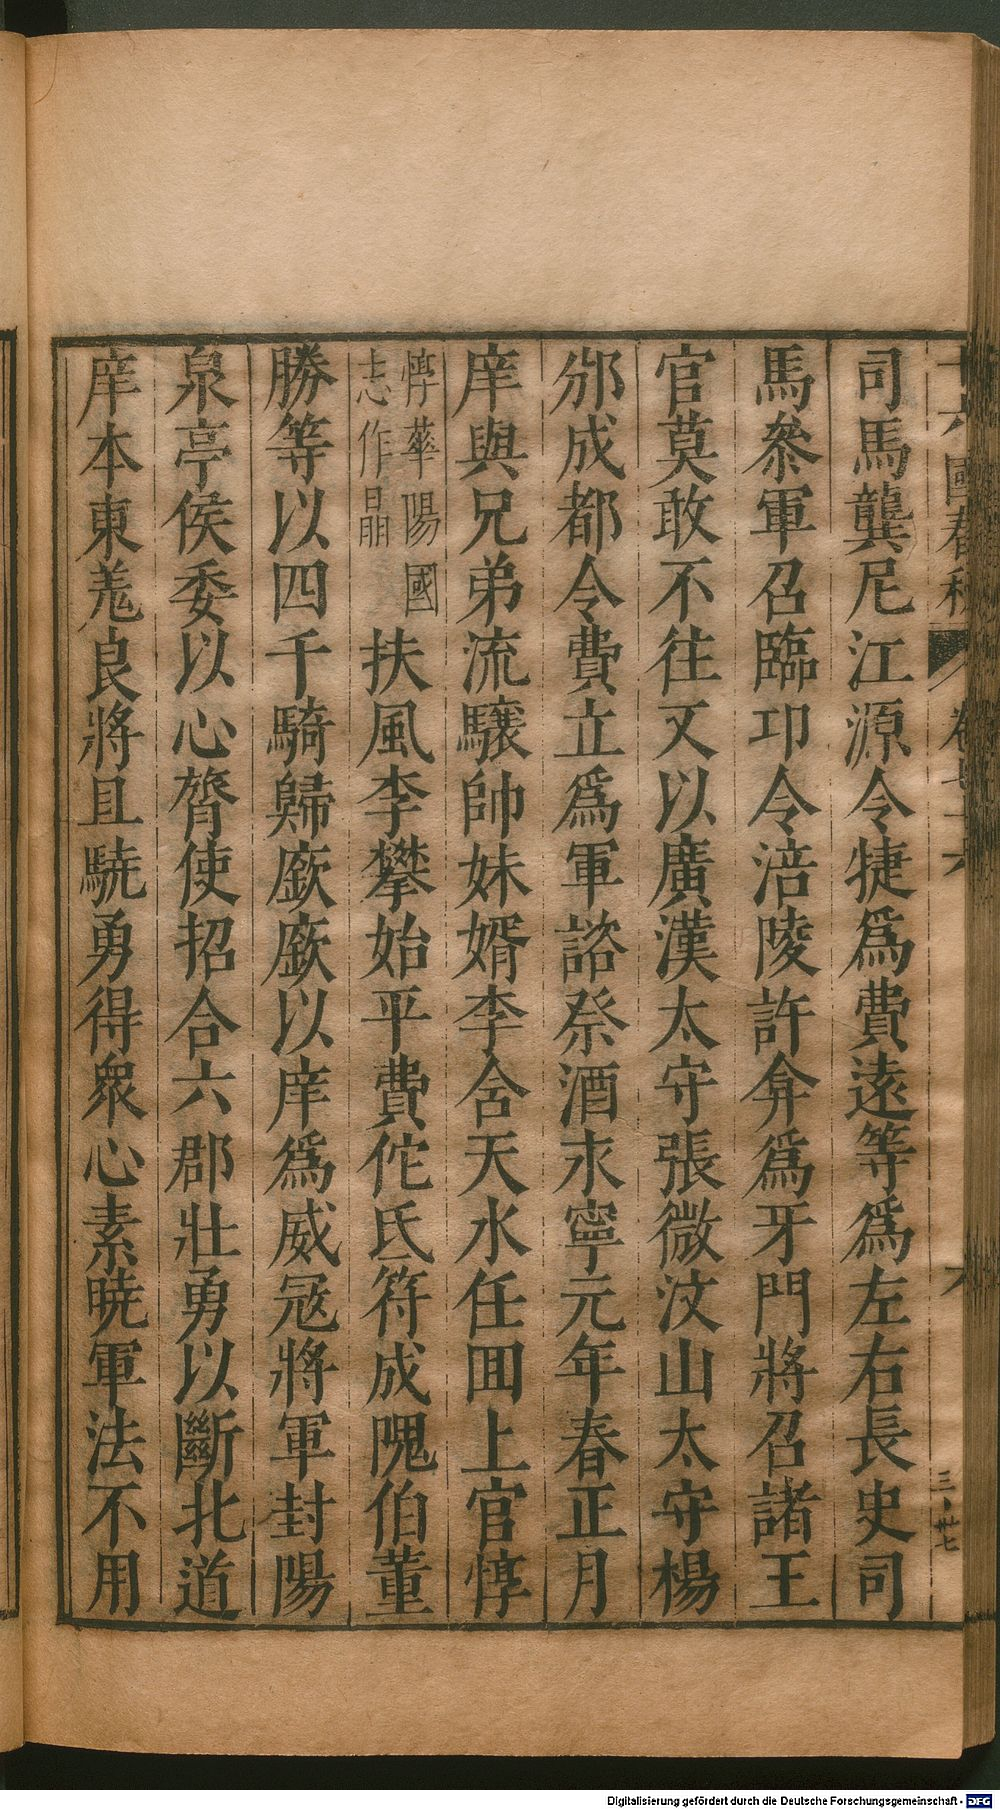 十六國春秋
卷七十六
六
三、卅七
司馬龔尼江源令揵爲費遠等爲左右長史司
馬叅軍召臨卭令涪陵許弇爲牙門將召諸王
官莫敢不往又以廣漢太守張微汶山太守楊
邠成都令費立爲軍諮祭酒永寧元年春正月
庠與兄弟流驤帥妹婿李含天水任囬上官惇
惇華陽國
志作晶
扶風李攀始平費佗氐符成隗伯董
勝等以四千騎歸廞廞以庠爲威宼將軍封陽
泉亭侯委以心膂使招合六郡壯勇以斷北道
庠本東羗良將且驍勇得衆心素曉軍法不用
Digitalisierung gefördert durch die Deutsche Forschungsgemeinschaft - DFG